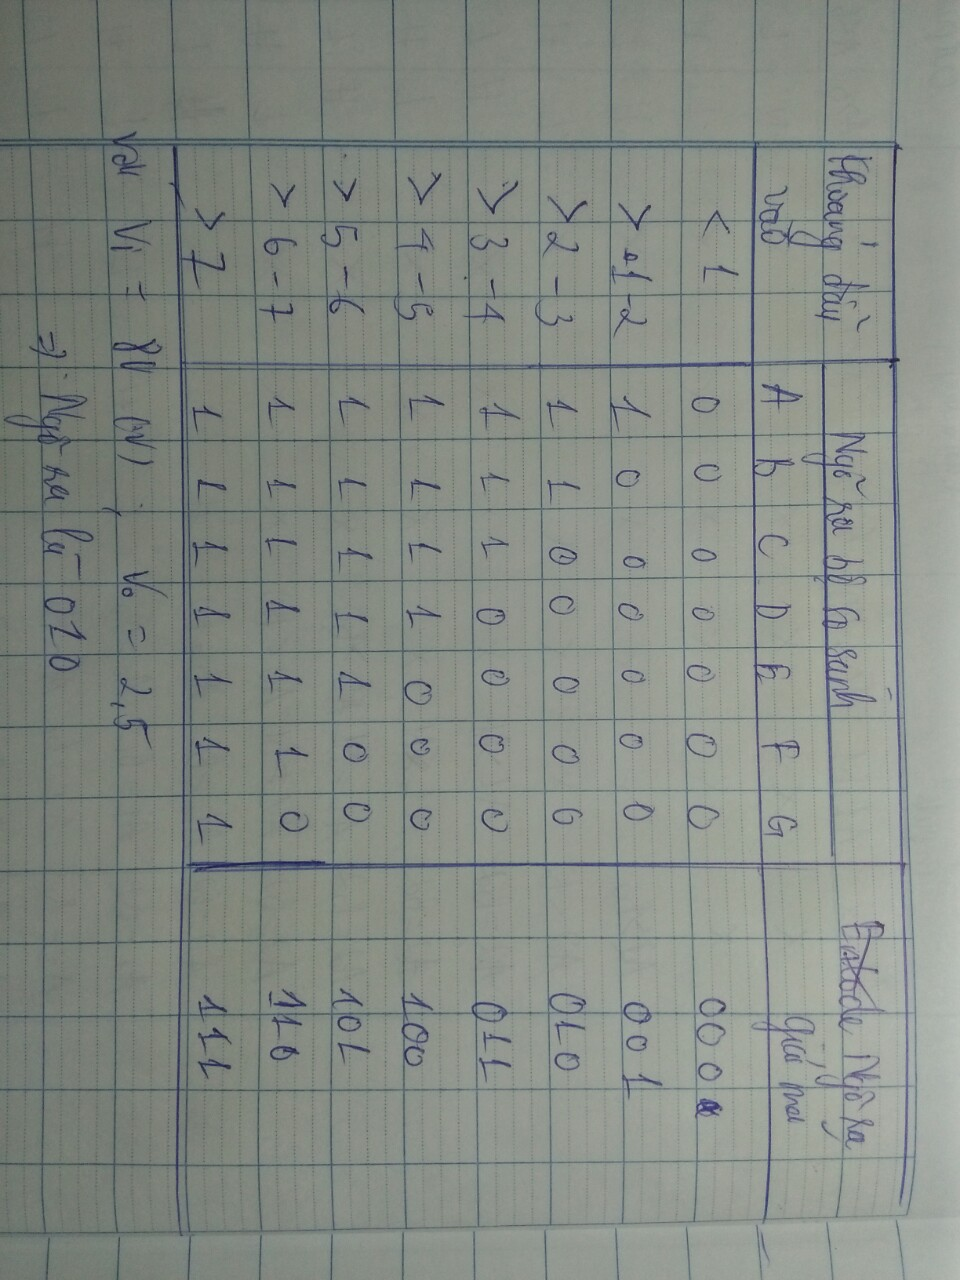 Khoảng đầu vào | Ngõ ra bộ so sánh | Ngõ ra giải mã
A B C D E F G
< 1 | 0 0 0 0 0 0 0 | 000
> 1-2 | 1 0 0 0 0 0 0 | 001
> 2 - 3 | 1 1 0 0 0 0 0 | 010
> 3 - 4 | 1 1 1 0 0 0 0 | 011
> 4 - 5 | 1 1 1 1 0 0 0 | 100
> 5 - 6 | 1 1 1 1 1 0 0 | 101
> 6 - 7 | 1 1 1 1 1 1 0 | 110
> 7 | 1 1 1 1 1 1 1 | 111
Với V₁ = 8V ; V₀ = 2,5
=> Ngõ ra là 010